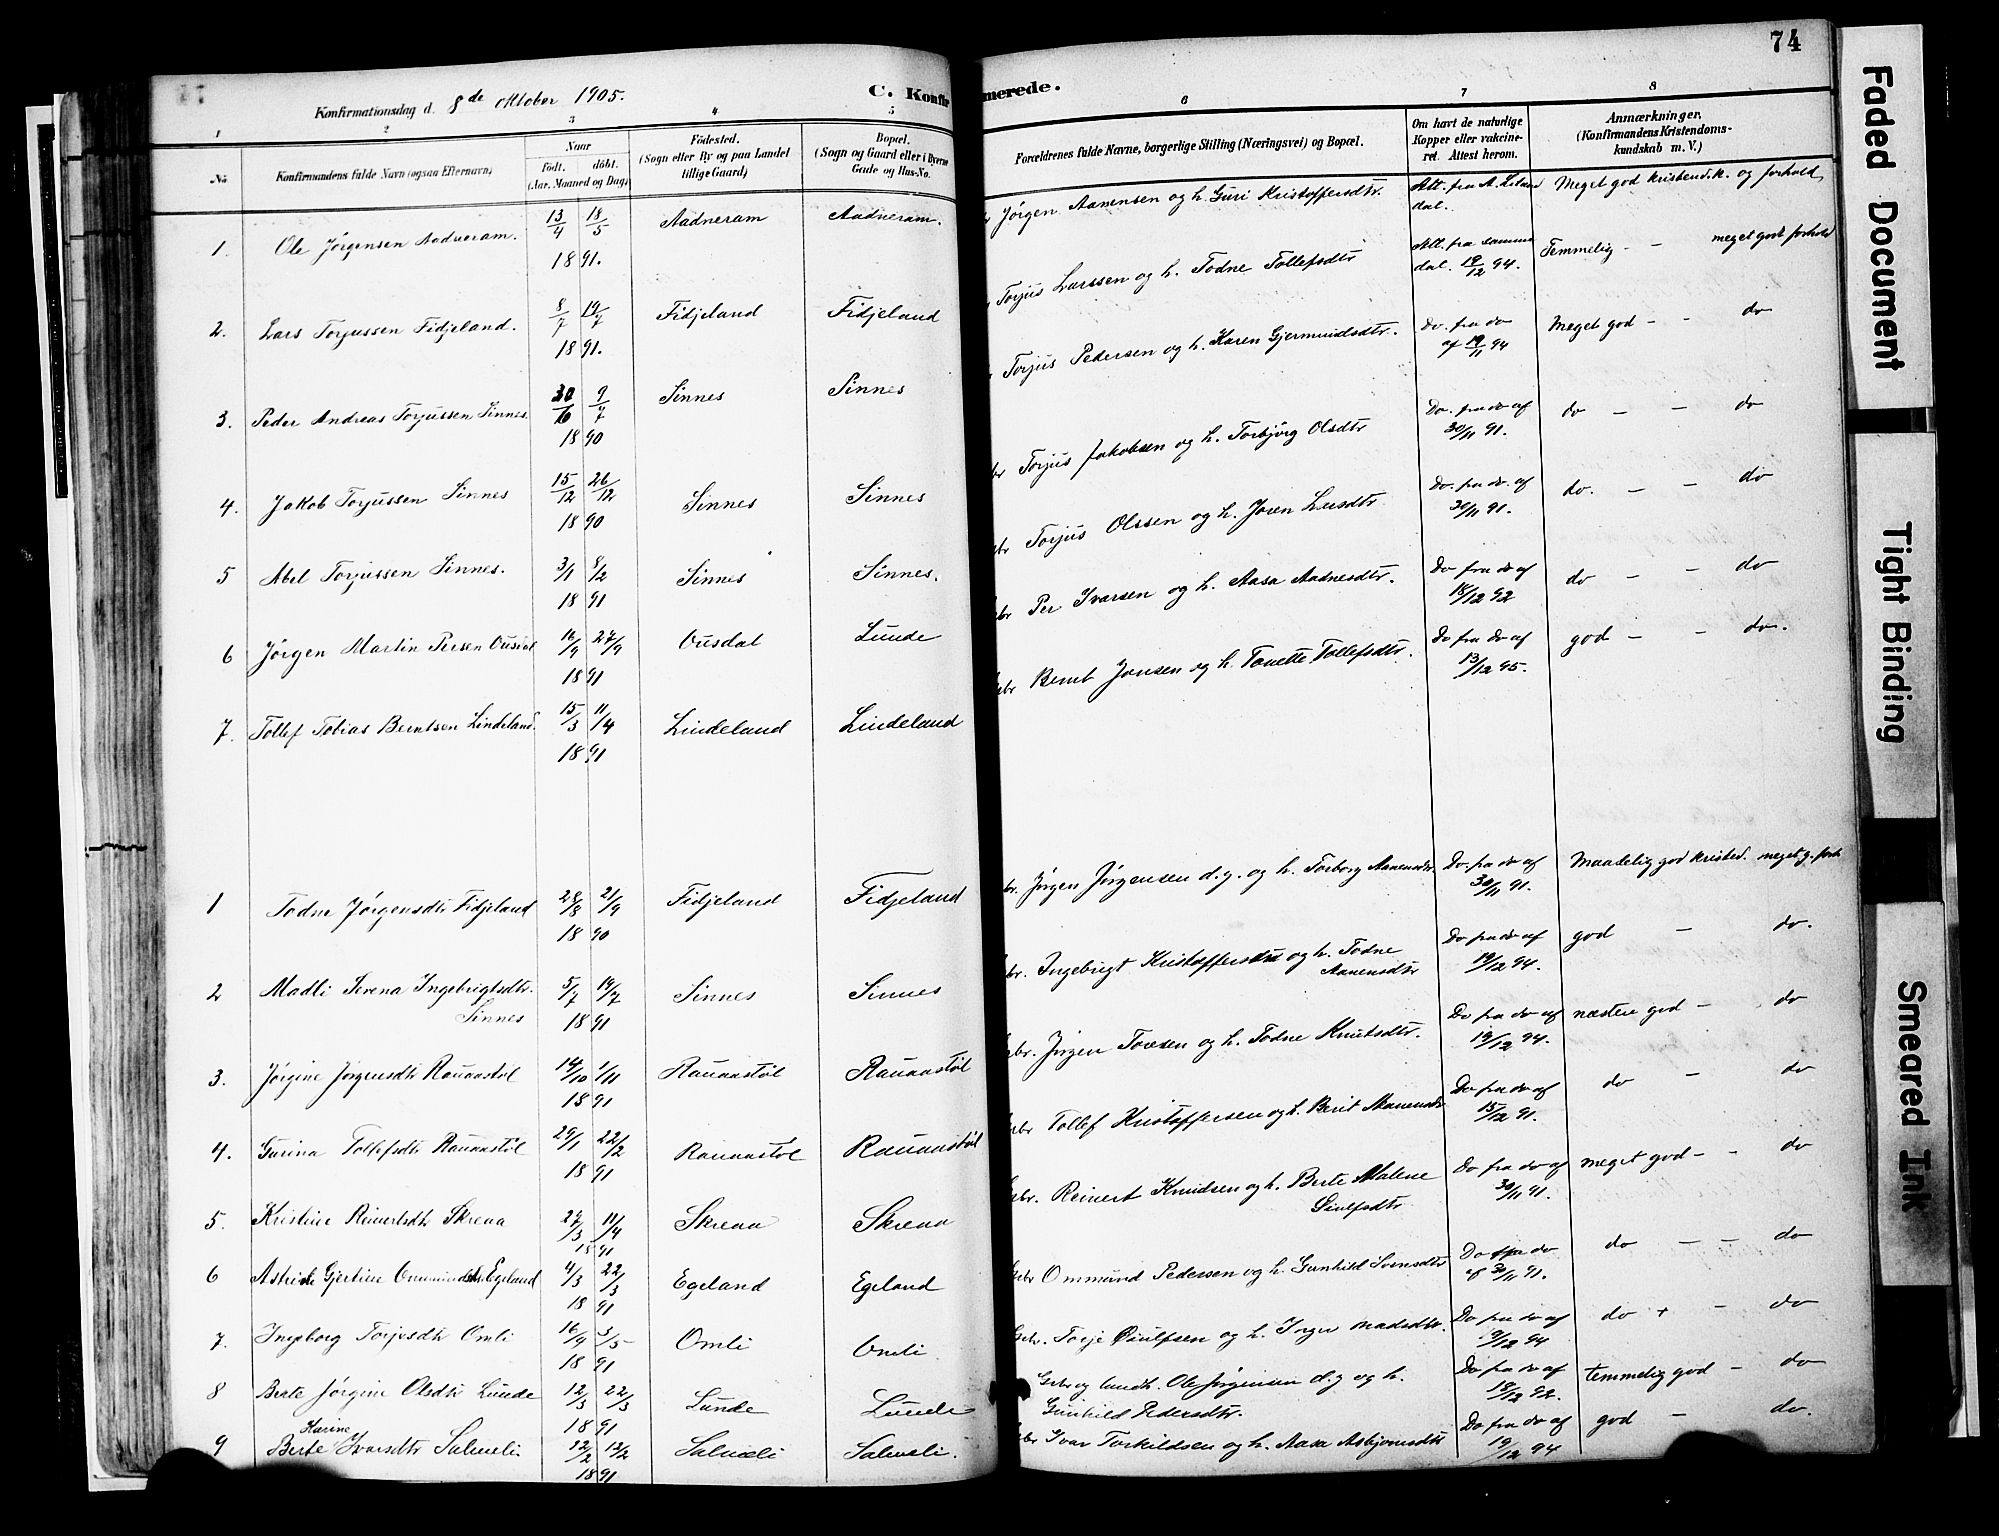 74
Konfirmationsdag d. 8de Oktober 1905.
C. Konfirmerede.
1 2 3 4 5 6 7 8
No
Konfirmandens fulde Navn (ogsaa Efternavn)
Naar
Født. døbt.
(Aar, Maaned og Dag)
Fødested.
(Sogn eller By og paa Landet
tillige Gaard)
Bopæl.
(Sogn og Gaard eller i Byerne
Gade og Hus-No.
Forældrenes fulde Navne, borgerlige Stilling (Næringsvei) og Bopæl.
Om havt de naturlige
Kopper eller vakcine-
ret. Attest herom.
Anmærkninger.
(Konfirmandens Kristendoms-
kundskab m. V.)
1. Ole Jørgensen Aadneram. 13/4 18/5 1891. Aadneram Aadneram. Jørgen Aanensen og h. Guri Kristoffersdtr. Att. fra dal. Meget god kristend.k. og forhold
2. Lars Torjussen Fidjeland. 8/7 19/7 1891. Fidjeland Fidjeland Torjus Larssen og h. Todne Tollefsdtr Att. fra samme dal. 19/12 94. Temmelig - - meget godt forhold
3. Peder Andreas Torjussen Sinnes. 30/6 9/7 1890 Sinnes Sinnes Torjus Pedersen og h. Karen Gjermundsdtr. Do. fra do af 19/11 94 Meget god - - do
4. Jakob Torjussen Sinnes 15/12 26/12 1890 Sinnes Sinnes Torjus Jakobsen og h. Torbjørg Olsdtr Do. fra do af 30/11 91. do - - do
5 Abel Torjussen Sinnes. 3/1 8/2 1891 Sinnes Sinnes. Torjus Olssen og h. Joren Do. fra do. af 30/11 91. do. - - do
6 Jørgen Martin Persen Ousdal 16/9 27/9 1891 Ousdal Lunde Per Ivarsen og h. Aasa Aadnesdtr. Do fra do af 18/12 92 do - - do
7. Tollef Tobias Berntsen Lindeland. 15/3 11/4 1891 Lindeland Lindeland Bernt Jonsen og h. Tonette Tollefsdtr. Do fra do af 13/12 95. god - - do.
1 Todne Jørgensdtr Fidjeland 28/8 21/9 1890 Fidjeland Fidjeland Jørgen Jørgensen d.y. og h. Torborg Aanensdtr. Do. fra do af 30/11 91. Maadelig god kristed. meget g. forh
2 Madli Serena Ingebrigtsdtr. Sinnes 5/7 19/7 1891 Sinnes Sinnes Ingebrigt Kristoffersen og h. Todne Aanensdtr Do fra do af 19/12 94. god - do.
3. Jørgine Jørgensdtr Rauaastøl 14/10 1/11 1891 Rauaastøl Rauaastøl Jørgen Tovesen og h. Todne Knutsdtr. Do fra do af 19/12 94. næsten god - do
4. Gurina Tollefsdtr Rauaastøl 29/1 22/2 1891 Rauaastøl Rauaastøl Tollef Kristoffersen og h. Berit Aanensdtr Do fra do af 15/12 91. do - do
5. Kristine Reinertsdtr Skreaa 27/3 11/4 1891 Skreaa Skreaa Reinert Knudsen og h. Berte Malene Siulfsdtr Do fra do af 30/11 91. meget god - - do
6 Astride Gjertine Ommundsdtr Egeland 4/3 22/3 1891 Egeland Egeland Ommund Pedersen og h. Gunhild Svensdtr Do fra do af 30/11 91. do - - do
7. Ingeborg Torjesdtr Omli 16/4 3/5 1891 Omli Omli. Torje og h. Inger Madsdtr. Do fra do af 19/12 94 do - do
8 Berte Jørgine Olsdtr Lunde 12/3 22/3 1891 Lunde Lunde Gbr og landh. Ole Jørgensen d.y og h. Gunhild Pedersdtr. Do fra do af 19/12 92. temmelig god - do
9 Berte Karine Ivarsdtr Salmeli 12/2 1891 Salmeli Salmeli. Ivar Torkildsen og h. Aasa Asbjørnsdtr Do fra do af 19/12 94 god - do.
Faded Document
Tight Binding
Smeared Ink